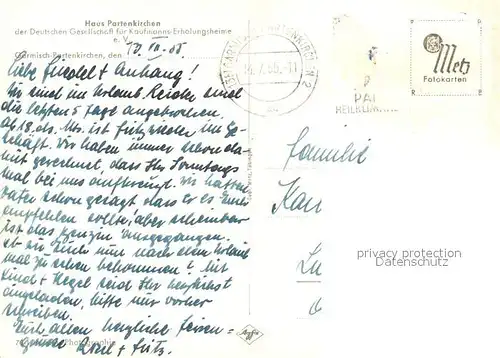 Haus Partenkirchen
der Deutschen Gesellschaft für Kaufmanns-Erholungsheime
e. V.
Garmisch-Partenkirchen, den
Liebe Friedel + Anhang!
Wir sind im Urlaub. Leider sind
die letzten 5 Tage angebrochen.
Ab 18. ds. Mts. ist Fritz wieder im Ge-
schäft. Wir haben immer schon da-
mit gerechnet, dass Ihr Sonntags
mal bei uns aufkreuzt. Wir hatten
Vater schon gesagt dass er es Euch
empfehlen sollte, aber scheinbar
ist das Benzin ausgegangen.
Ob wir Euch nun nach dem Urlaub
mal zu sehen bekommen? Mit
Kind + Kegel seid Ihr herzlichst
eingeladen, bitte nur vorher
schreiben.
Euch allen herzliche Ferien=
grüsse + Fritz.
Metz
Fotokarten
Familie
Kau
Lu
privacy protection
Datenschutz
Agfa